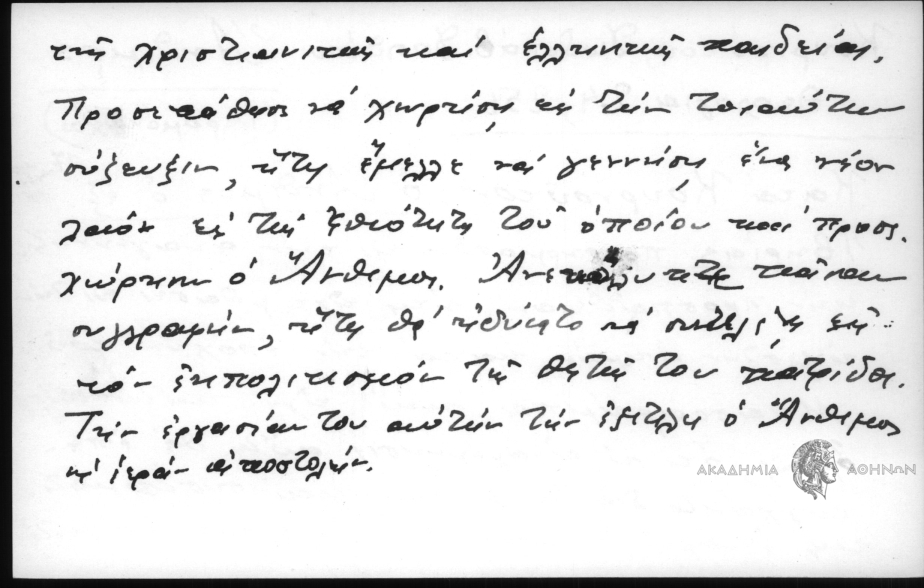 τῆς χριστιανικῆς καί ἑλληνικῆς παιδείας.
Προσεπάθησε νά χωρήσῃ εἰς τήν τοιαύτην
σύζευξιν, ἥτις ἔμελλε νά γεννήσῃ ἕνα νέον
λαόν εἰς τήν τοῦ ὁποίου καί προσ-
χώρησεν ὁ Ἄνθιμος. τε
συγγραφήν, ἥτις θά ἠδύνατο νά συντελέσῃ εἰς
τόν ἐκπολιτισμόν τῆς θετῆς του πατρίδος.
Τήν ἐργασίαν του αὐτήν τήν ἐξετέλει ὁ Ἄνθιμος
ὡς ἱεράν ἀποστολήν.
ΑΚΑΔΗΜΙΑ ΑΘΗΝΩΝ